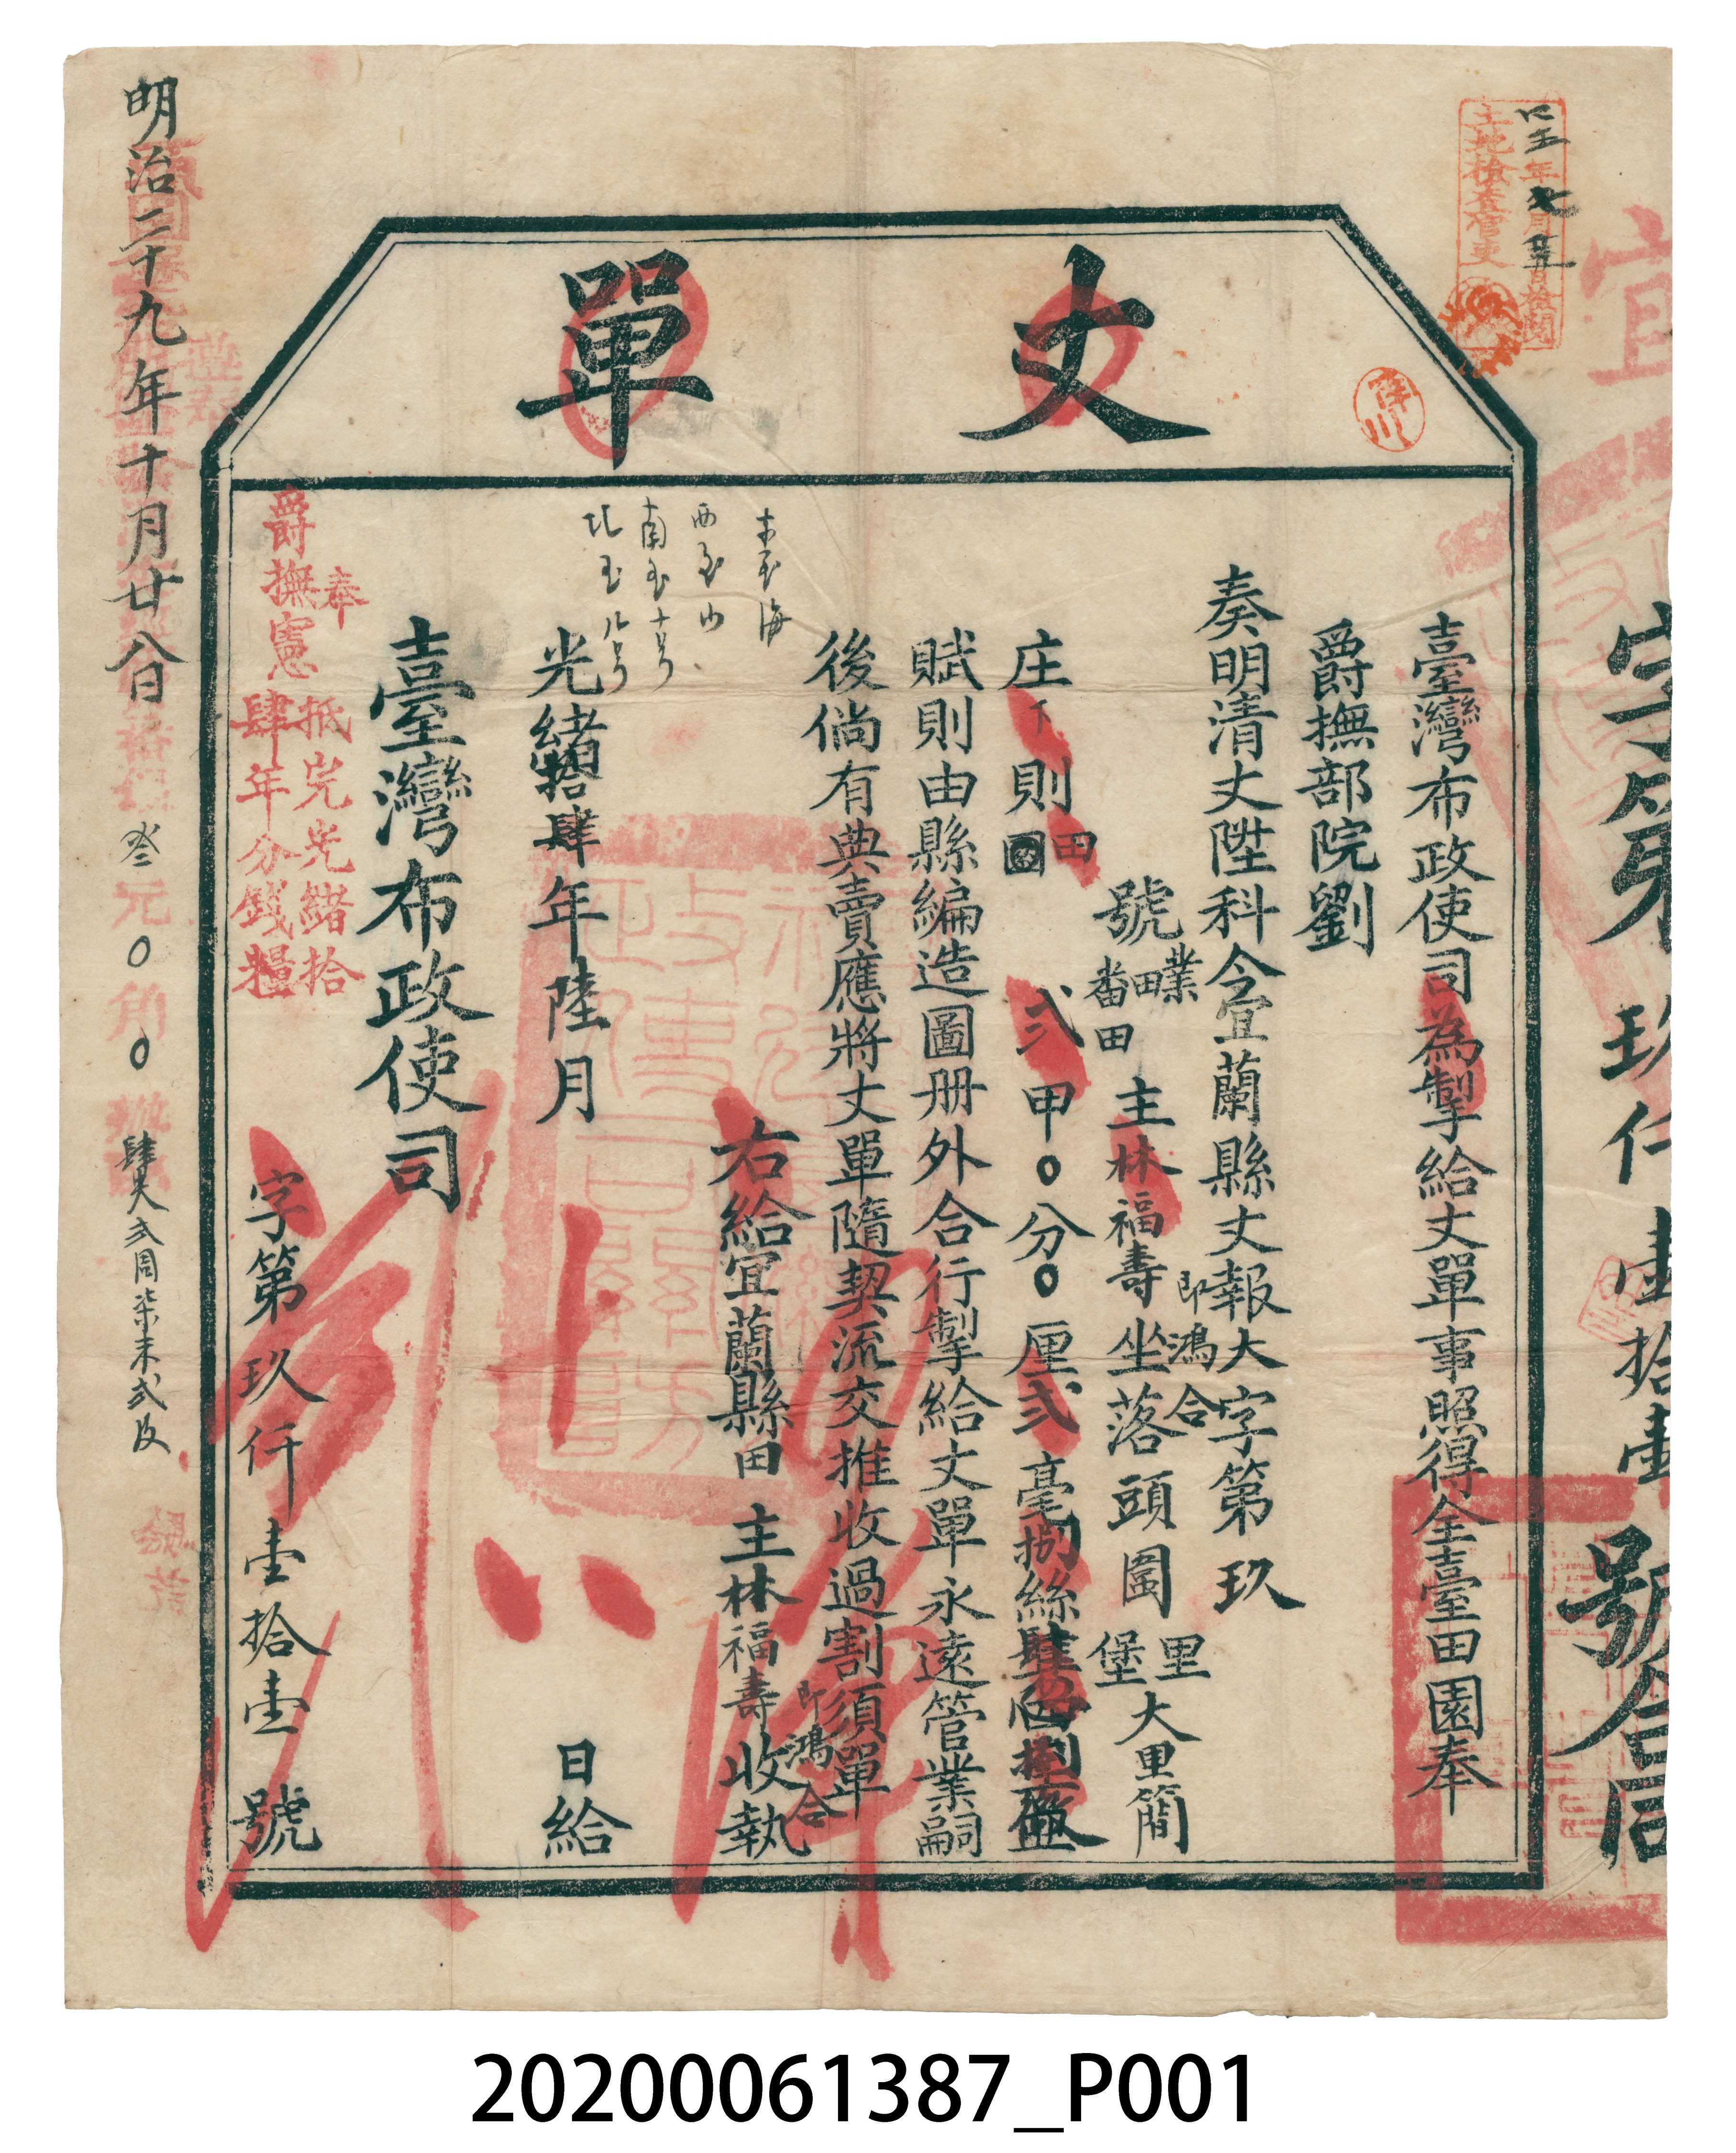 丈單
臺灣布政使司為掣給丈單事照得全臺田園奉
爵撫部院劉
奏明清丈陞科今宜蘭縣丈報大字第玖
號業田番田主林福壽即鴻合坐落頭圍里堡大里簡
庄下則田 弍甲0分0厘弍毫捌絲
賦則由縣編造圖册外合行掣給丈單永遠管業嗣
後倘有典賣應將丈單隨契流交推收過割須單
右給宜蘭縣田主林福壽即鴻合收執
東至海
西至山
南至十号
北至八号
光緒拾肆年陸月 日給
臺灣布政使司
奉
爵撫憲
抵完光緒拾
肆年分錢糧
字第玖仟壹拾壹號
明治二十九年十月廿八日
叁元0角0
字第玖仟壹拾壹號
土地檢查官吏
四五年七月廿五日檢閱
宜
20200061387_P001